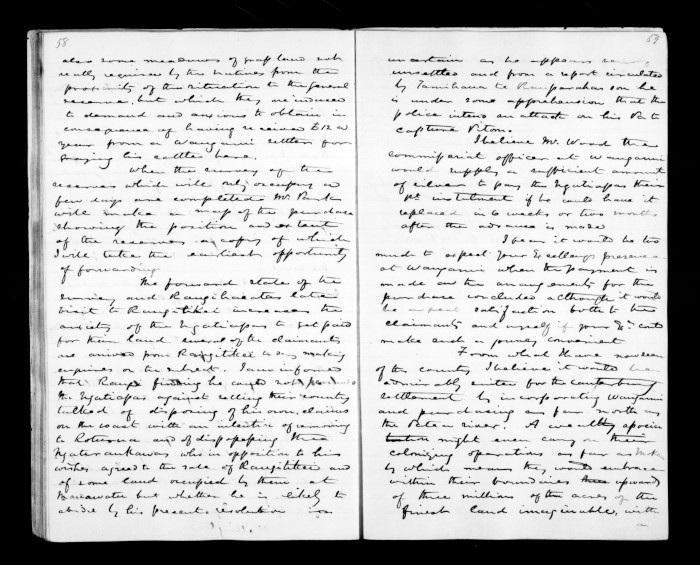 58
also some meadows of grass land not
really required by the natives from the
proximity of the situation to the general
reserve, but which they are induced
to demand and anxious to obtain in
consequence of having received £12 a
year from a Wanganui settler for
grazing his cattle here.
When the survey of the
reserves which will only occupy a
few days are completed Mr. Park
will make a map of the purchase
showing the position and extent
of the reserves a copy of which
I will take the earliest opportunity
of forwarding
The forward state of the
survey and Rangihaeatas late
visit to Rangitikei increases the
anxiety of the Ngatiapas to get paid
for their land several of the claimants
are arrived from Rangitikei to day making
enquiries on the subject. I am informed
that Rangi finding he could not persuade
the Ngatiapas against selling their country
talked of disposing of his own claims
on the coast with an intention of removing
to Rotorua and of dispossessing the
Ngateraukawas who in opposition to his
wishes agreed to the sale of Rangitikei and
of some land occupied by them at
Manawatu but whether he is likely to
abide by his present resolution is
59
uncertain as he appears
unsettled and from a report circulated
by Tamihana te Rauparahas son he
is under some apprehension that the
police intend an attack on his Pa to
capture
I believe Mr. Wood the
commissariat officer at Wanganui
would supply a sufficient amount
of silver to pay the Ngatiapas their
1st instalment if he could have it
replaced in 6 weeks or two months
after the advance is made
I fear it would be too
much to expect Your Excellencys presence
at Wanganui when the payment is
made or the arrangements for the
purchase concluded although it would
be a great satisfaction both to the
claimants and myself if your Ex. could
make such a journey convenient
From what I have now seen
of the country I believe it would be
admirably suited for the Canterbury
settlement by incorporating Wanganui
and purchasing as far north as
the Patea river. A wealthy associa
tion might even carry on their
colonizing operations as far as
by which means they would embrace
within their boundaries upwards
of three millions of acres of the
finest land imaginable, with